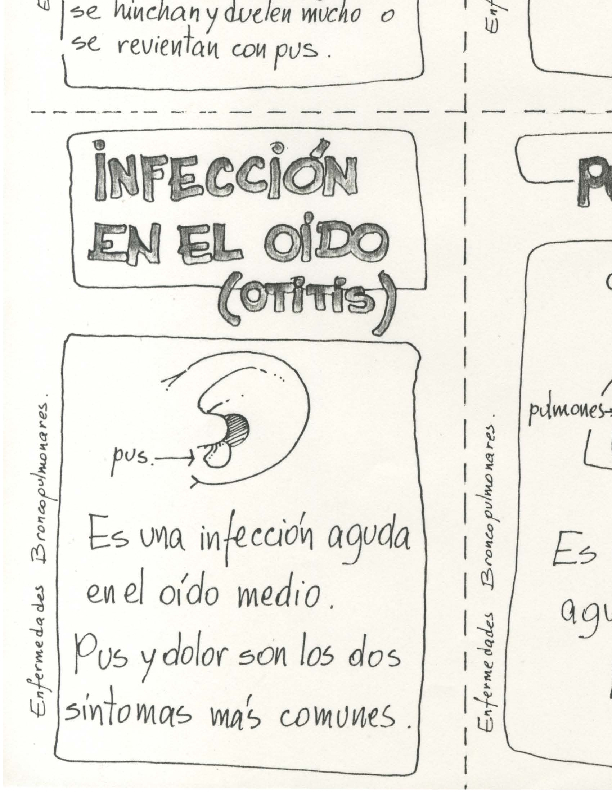 se hinchan y duelen mucho o
se revientan con pus.
INFECCIÓN
EN EL OÍDO
(OTITIS)
pus.
Es una infección aguda
en el oído medio.
Pus y dolor son los dos
síntomas más comunes.
Enfermedades Broncopulmonares.
pulmones
Es
Enfermedades Broncopulmonares.